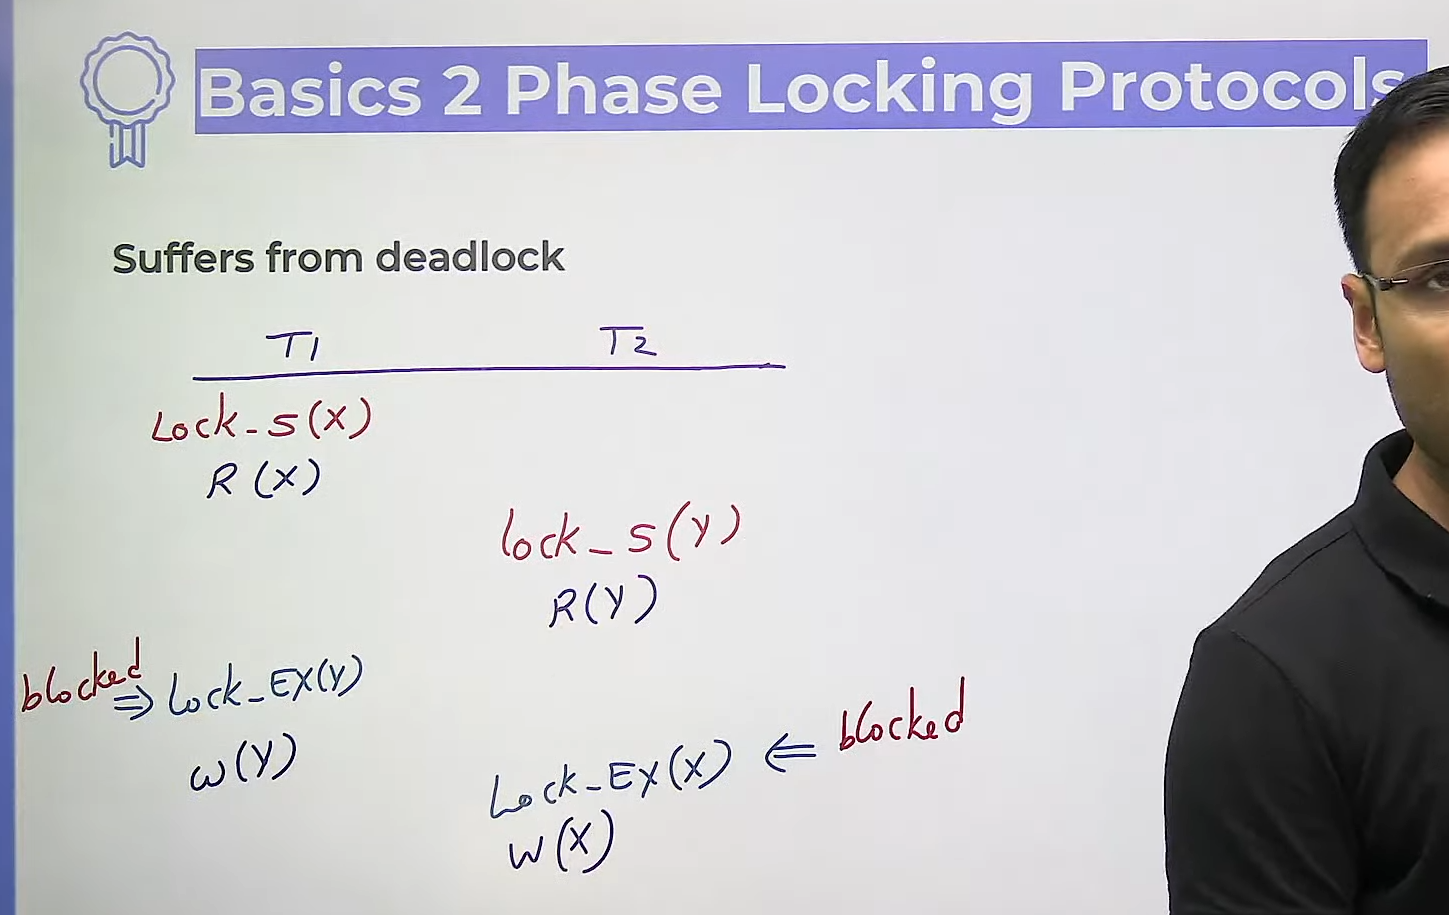 Basics 2 Phase Locking Protocols
Suffers from deadlock
T1 T2
Lock_S(X)
R(X)
lock_S(Y)
R(Y)
blocked ⇒ lock_EX(Y)
W(Y)
Lock_EX(X) ⇐ blocked
W(X)